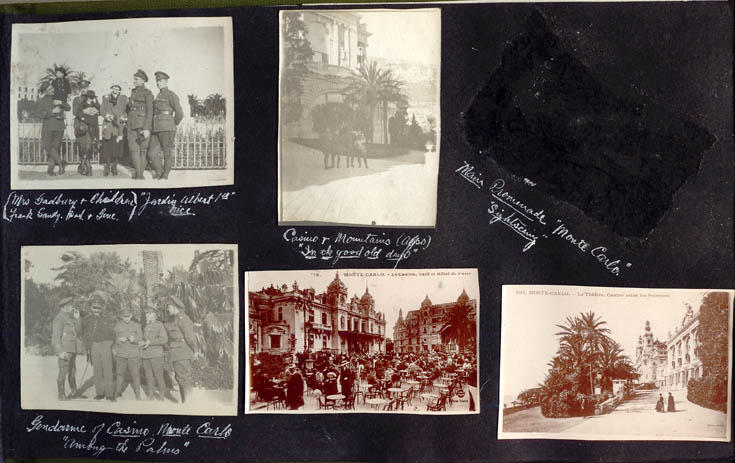 (Mrs Gadbury & Children
Frank Gandy. Bud & Gene.)
"Jardin Albert 1er"
Nice.
Casino & Mountains (Alps)
"In ye good old days"
Main Promenade "Monte Carlo."
"Sightseeing"
Gendarme of Casino Monte Carlo
"Among the Palms"
MONTE-CARLO. - Le Casino, Café et Hôtel de Paris
MONTE-CARLO. - Le Théâtre, Casino entre les Palmiers